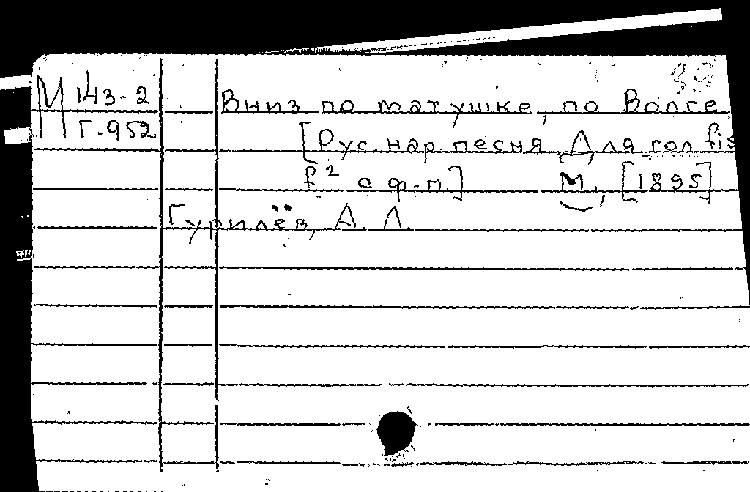 М 143-2 Вниз по матушке, по Волге
Г-952 [Рус. нар. песня. Для гол. fis
f² с ф.-п.] М., [1895]
Гурилёв, А. Л.